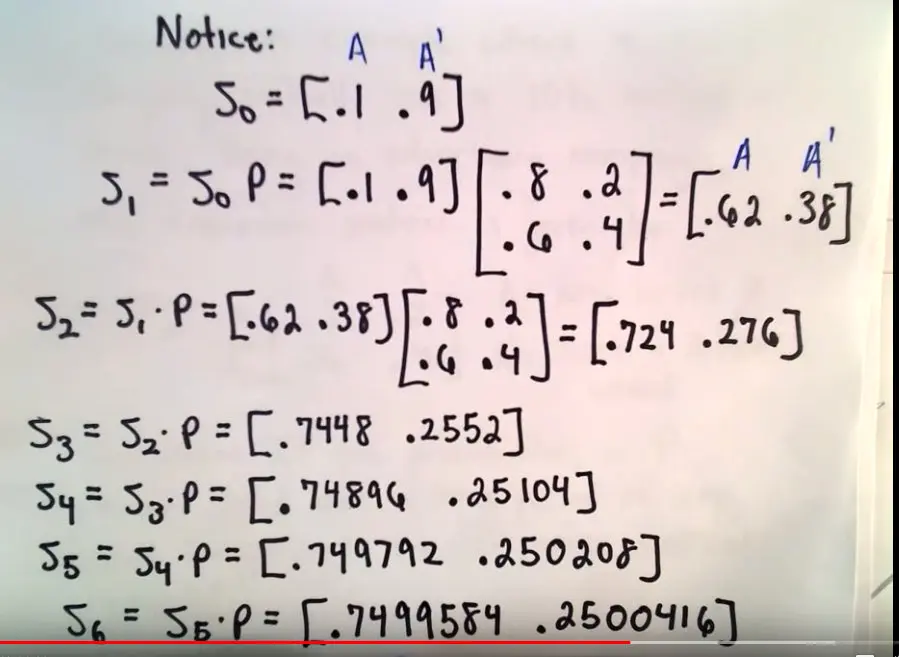 Notice:
A A'
S₀ = [.1 .9]
A A'
S₁ = S₀ P = [.1 .9] [.8 .2
.6 .4] = [.62 .38]
S₂ = S₁ · P = [.62 .38] [.8 .2
.6 .4] = [.724 .276]
S₃ = S₂ · P = [.7448 .2552]
S₄ = S₃ · P = [.74896 .25104]
S₅ = S₄ · P = [.749792 .250208]
S₆ = S₅ · P = [.7499584 .2500416]